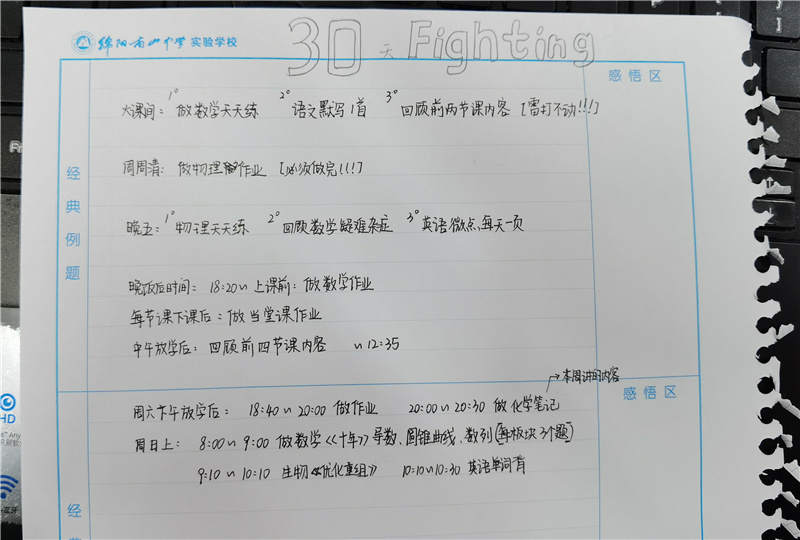 绵阳南山中学实验学校 30天 Fighting
感悟区
大课间: 1° 做数学天天练 2° 语文默写1首 3° 回顾前两节课内容 [雷打不动!!!]
周周清: 做物理作业 [必须做完!!!]
经典例题
晚五: 1° 物理天天练 2° 回顾数学疑难杂症 3° 英语微点,每天一页
晚饭后时间: 18:20~上课前: 做数学作业
每节课下课后: 做当堂课作业
中午放学后: 回顾前四节课内容 ~12:35
→本周讲的内容
感悟区
周六下午放学后: 18:40~20:00 做作业 20:00~20:30 做化学笔记
周日上: 8:00~9:00 做数学《十年》导数、圆锥曲线、数列[每板块3个题]
9:10~10:10 生物《优化重组》 10:10~10:30 英语单词背
经